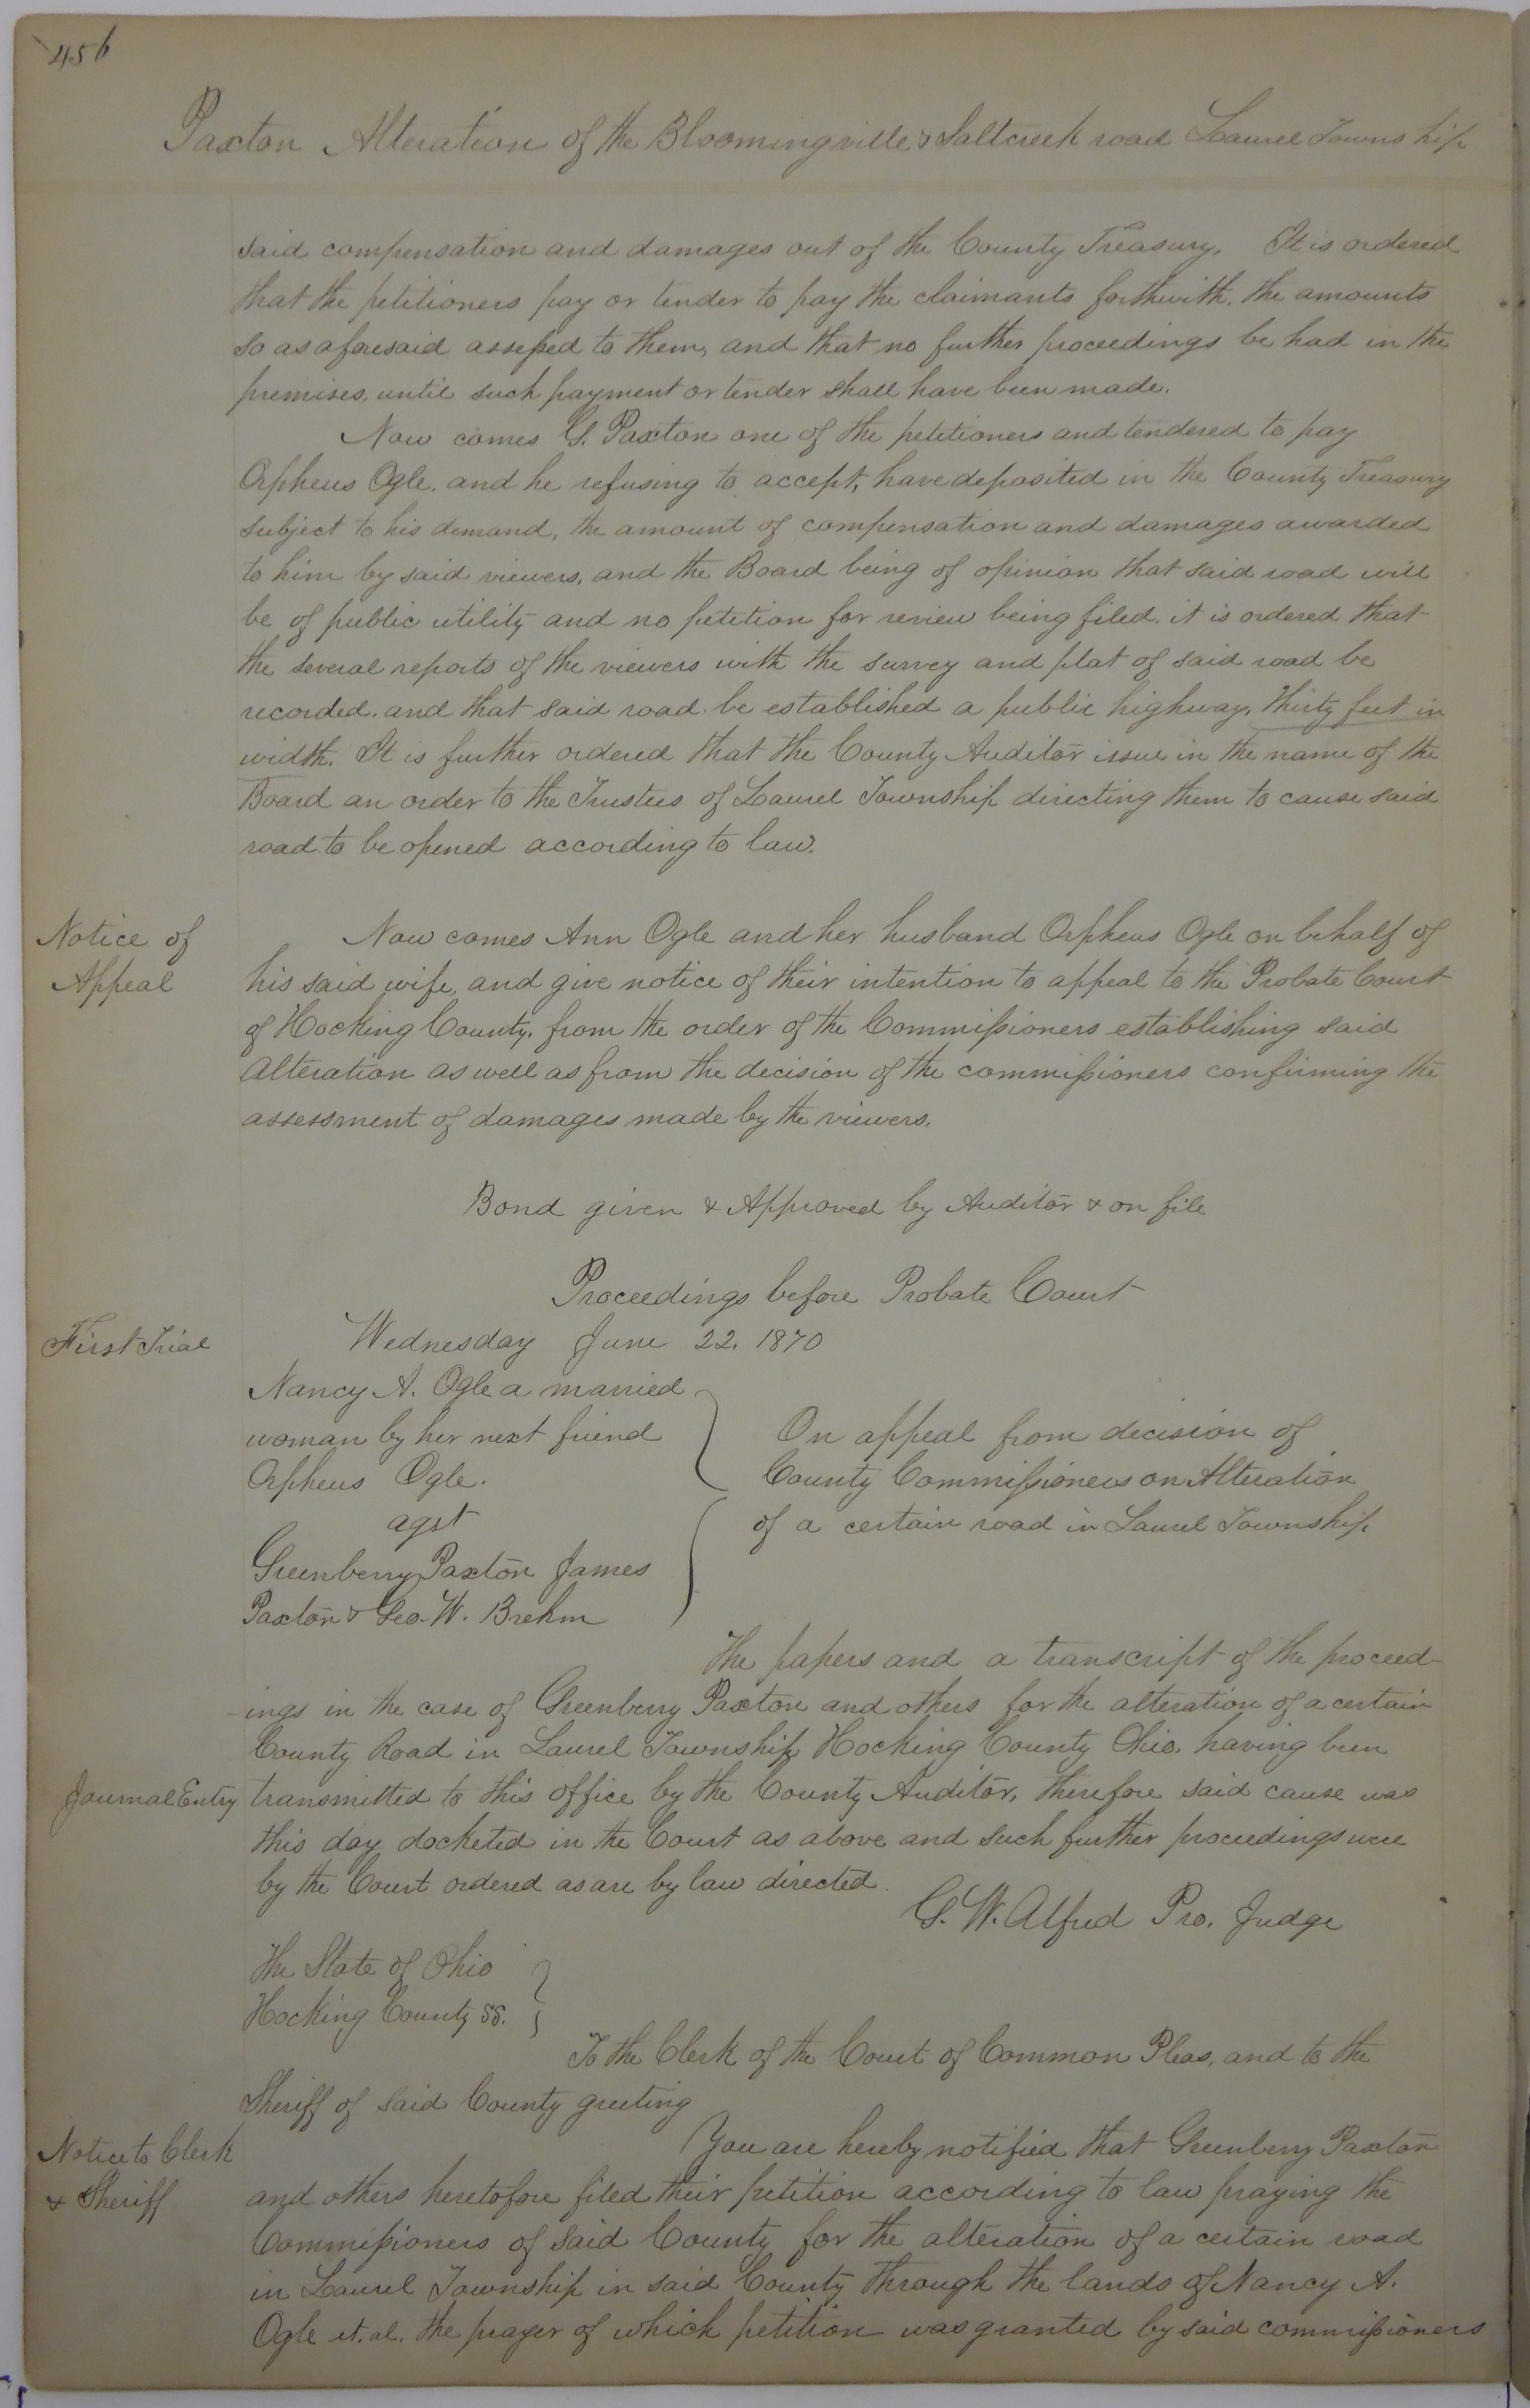 456
Paxton Alteration of the Bloomingville & Saltcreek road Laurel Township
said compensation and damages out of the County Treasury. It is ordered
that the petitioners pay or tender to pay the claimants forthwith, the amounts
so as aforesaid assessed to them, and that no further proceedings be had in the
premises, until such payment or tender shall have been made.
Now comes G. Paxton one of the petitioners and tendered to pay
Orpheus Ogle, and he refusing to accept, have deposited in the County Treasury
subject to his demand, the amount of compensation and damages awarded
to him by said viewers, and the Board being of opinion that said road will
be of public utility and no petition for review being filed, it is ordered that
the several reports of the viewers with the survey and plat of said road be
recorded, and that said road be established a public highway, thirty feet in
width. It is further ordered that the County Auditor issue in the name of the
Board an order to the Trustees of Laurel Township directing them to cause said
road to be opened according to law.
Notice of
Appeal
Now comes Ann Ogle and her husband Orpheus Ogle on behalf of
his said wife, and give notice of their intention to appeal to the Probate Court
of Hocking County, from the order of the Commissioners establishing said
Alteration as well as from the decision of the commissioners confirming the
assessment of damages made by the viewers.
Bond given & Approved by Auditor & on file
Proceedings before Probate Court
First Trial
Wednesday June 22. 1870
Nancy A. Ogle a married
woman by her next friend
Orpheus Ogle.
agst
Greenberry Paxton James
Paxton & Geo. W. Brehm
On appeal from decision of
County Commissioners on Alteration
of a certain road in Laurel Township
The papers and a transcript of the proceed-
-ings in the case of Greenberry Paxton and others for the alteration of a certain
County Road in Laurel Township Hocking County Ohio, having been
Journal Entry
transmitted to this office by the County Auditor, therefore said cause was
this day docketed in the Court as above and such further proceedings were
by the Court ordered as are by law directed.
G. W. Alfred Pro. Judge
The State of Ohio
Hocking County ss.
To the Clerk of the Court of Common Pleas, and to the
Sheriff of said County greeting
Notice to Clerk
& Sheriff
You are hereby notified that Greenberry Paxton
and others heretofore filed their petition according to law praying the
Commissioners of said County for the alteration of a certain road
in Laurel Township in said County through the lands of Nancy A.
Ogle et. al. the prayer of which petition was granted by said commissioners